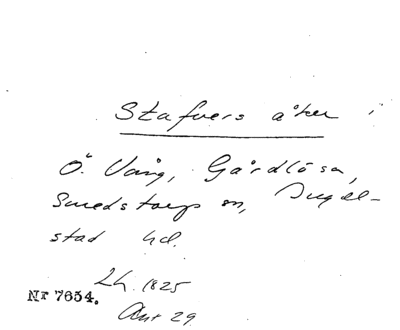 Stafvers åker i
Ö. Vång, Gårdlösa,
Smedstorps sn, Ingel-
stad hd.
Lh. 1825
Nr 7654.
Akt 29